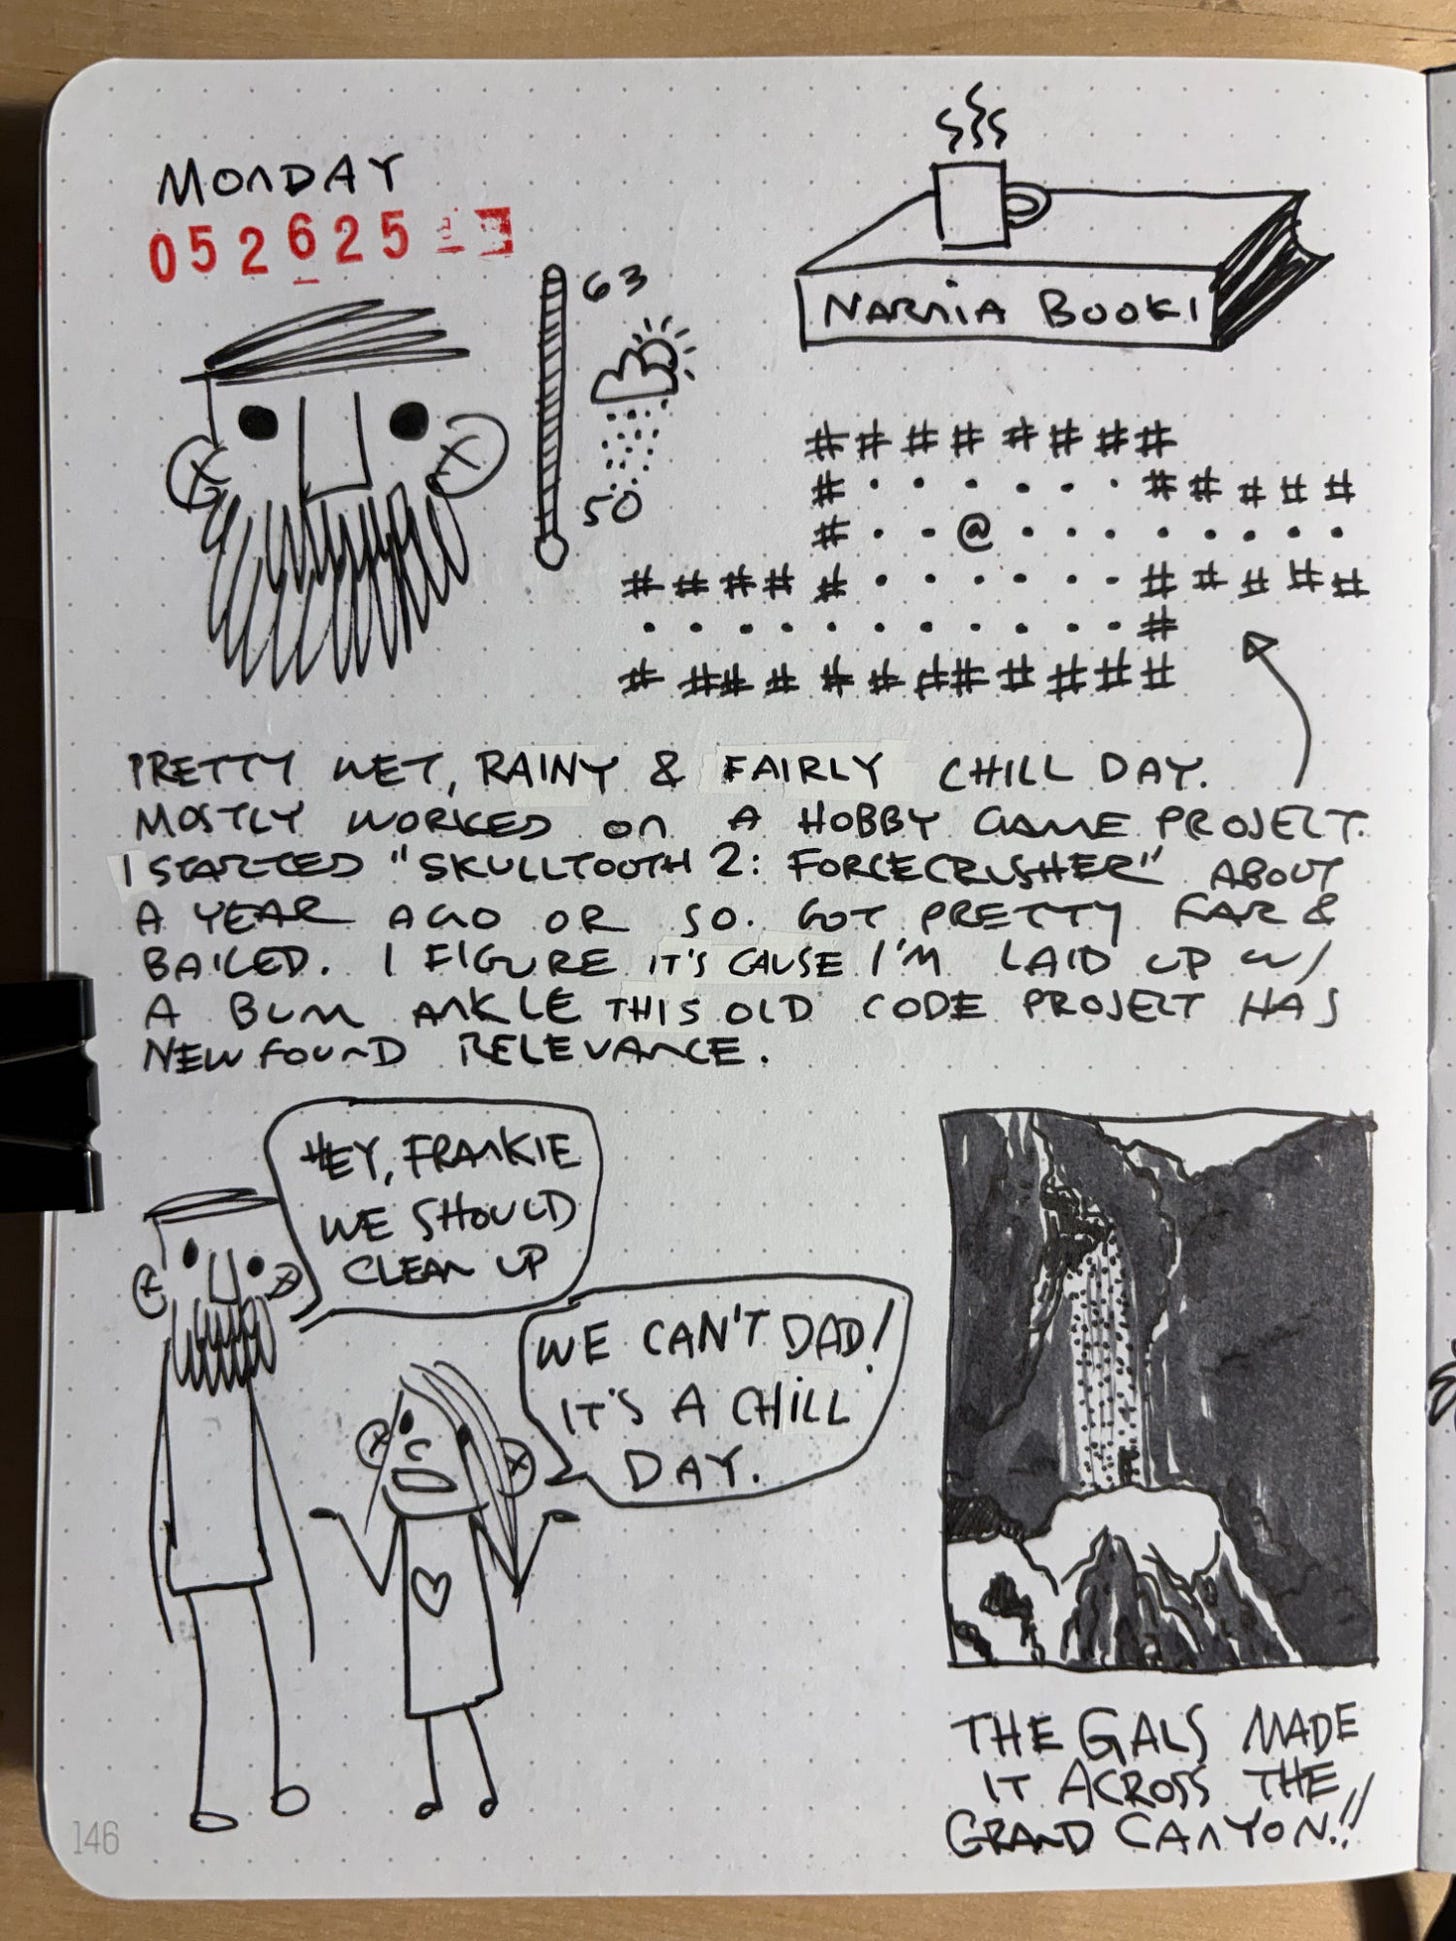 MONDAY
052625
63
50
NARNIA BOOK 1
########
#······#####
#··@·········
#####······#####
···········#
############
PRETTY WET, RAINY & FAIRLY CHILL DAY.
MOSTLY WORKED ON A HOBBY GAME PROJECT.
I STARTED "SKULLTOOTH 2: FORCECRUSHER" ABOUT
A YEAR AGO OR SO. GOT PRETTY FAR &
BAILED. I FIGURE IT'S CAUSE I'M LAID UP W/
A BUM ANKLE THIS OLD CODE PROJECT HAS
NEWFOUND RELEVANCE.
HEY, FRANKIE
WE SHOULD
CLEAN UP
WE CAN'T DAD!
IT'S A CHILL
DAY.
THE GALS MADE
IT ACROSS THE
GRAND CANYON!!
146